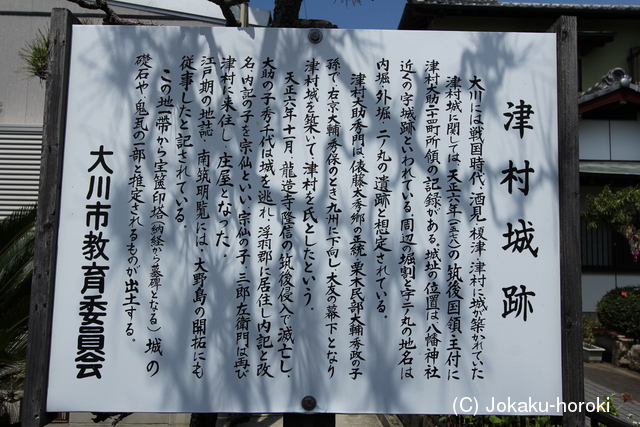 津村城跡
大川には戦国時代、酒見、榎津、津村に城が築かれていた。
津村城に関しては、天正六年(一五七八)の筑後国領主付に
津村大助二十町所領の記録がある。城址の位置は八幡神社
近くの字城跡といわれている。周辺の堀割と字二ノ丸の地名は
内堀、外堀、二ノ丸の遺跡と想定されている。
津村大助秀門は、俵藤太秀郷の正統、栗木民部大輔秀政の子
孫で、右京大輔秀保のとき、九州に下向し、大友の幕下となり
津村城を築いて、津村を氏としたという。
天正六年十一月、龍造寺隆信の筑後侵入で滅亡し、
大助の子秀千代は城を逃れ、浮羽郡に居住し内記と改
名、内記の子を宗仙といい、宗仙の子、三郎左衛門は再び
津村に来住し、庄屋となった。
江戸期の地誌、南筑明覧には、大野島の開拓にも
従事したと記されている。
この地一帯から宝篋印塔(納経から墓碑となる石)城の
礎石や、鬼瓦の一部と推定されるものが出土する。
大川市教育委員会
(C) Jokaku-horoki